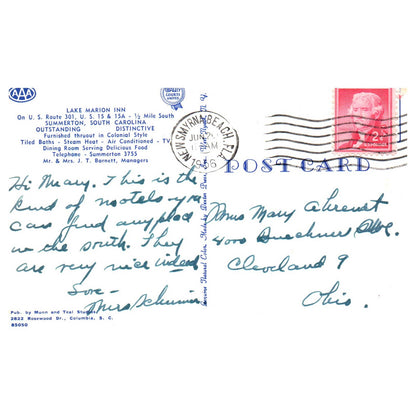 AAA
LAKE MARION INN
On U. S. Route 301, U. S. 15 & 15A - ½ Mile South
SUMMERTON, SOUTH CAROLINA
OUTSTANDING DISTINCTIVE
Furnished thruout in Colonial Style
Tiled Baths - Steam Heat - Air Conditioned - TV
Dining Room Serving Delicious Food
Telephone - Summerton 3755
Mr. & Mrs. J. T. Barnett, Managers
Hi Mary. This is the
kind of motels you
can find anyplace
in the south. They
are very nice indeed
Love -
Mrs
Pub. by Munn and Teal Studios
2822 Rosewood Dr., Columbia, S. C.
85050
NEW SMYRNA BEACH, FLA.
JUN
1956
POST CARD
Miss Mary
4000 Ave.
Cleveland 9
Ohio.